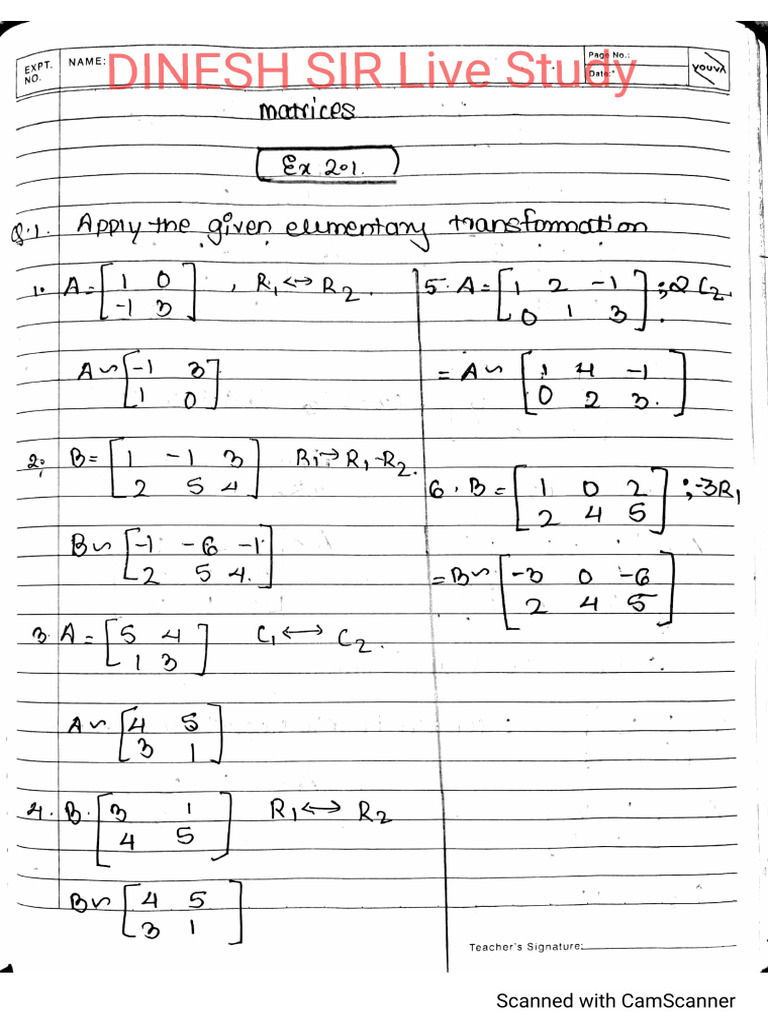 DINESH SIR Live Study
EXPT. NO.
NAME:
Page No.:
Date:
YOUVA
matrices
Ex 2.1.
Q.1. Apply the given elementary transformation
1. A = [1 0
-1 3] , R1 ↔ R2.
A ~ [-1 3
1 0]
2. B = [1 -1 3
2 5 4] R1 → R1-R2.
B ~ [-1 -6 -1
2 5 4.]
3. A = [5 4
1 3] C1 ↔ C2.
A ~ [4 5
3 1]
4. B. [3 1
4 5] R1 ↔ R2
B ~ [4 5
3 1]
5. A = [1 2 -1
0 1 3] ; 2 C2.
= A ~ [1 4 -1
0 2 3.]
6. B = [1 0 2
2 4 5] ; -3R1
= B ~ [-3 0 -6
2 4 5]
Teacher's Signature:
Scanned with CamScanner